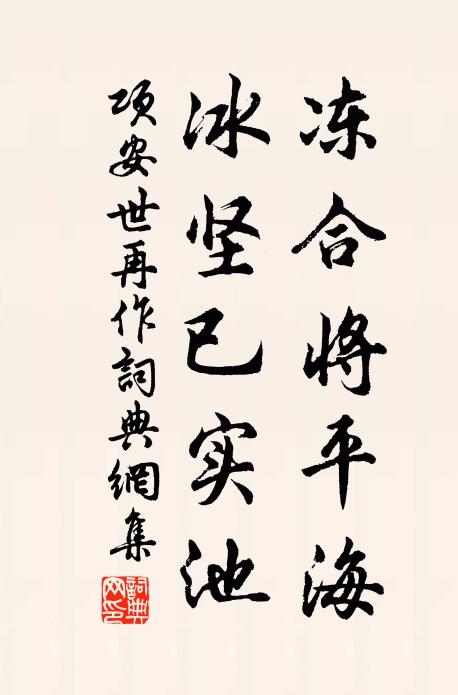 冻合将平海
冰坚已实池
项安世再作詞典網集
詞典网印